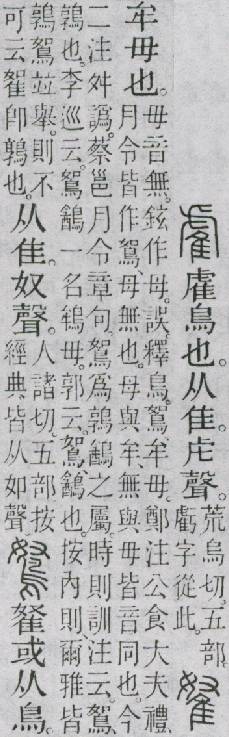 雐鳥也。从隹。虍聲。荒烏切。五部。
虧字從此。
牟毋也。毋音無。鉉作母。誤。釋鳥。鴽、牟毋。鄭注公食大夫禮、
月令皆作鴽、毋無也。毋與牟、無與毋皆音同也。今
二注舛譌。蔡邕月令章句。鴽爲鶉䳺之屬。時則訓注云。鴽、
鶉也。李巡云。鴽䳺一名鴾毋。郭云。鴽、䳺也。按內則、爾雅皆
鶉鴽竝舉。則不
可云卽鶉也。
从隹。奴聲。人諸切。五部。按
經典皆从如聲。
或从鳥。